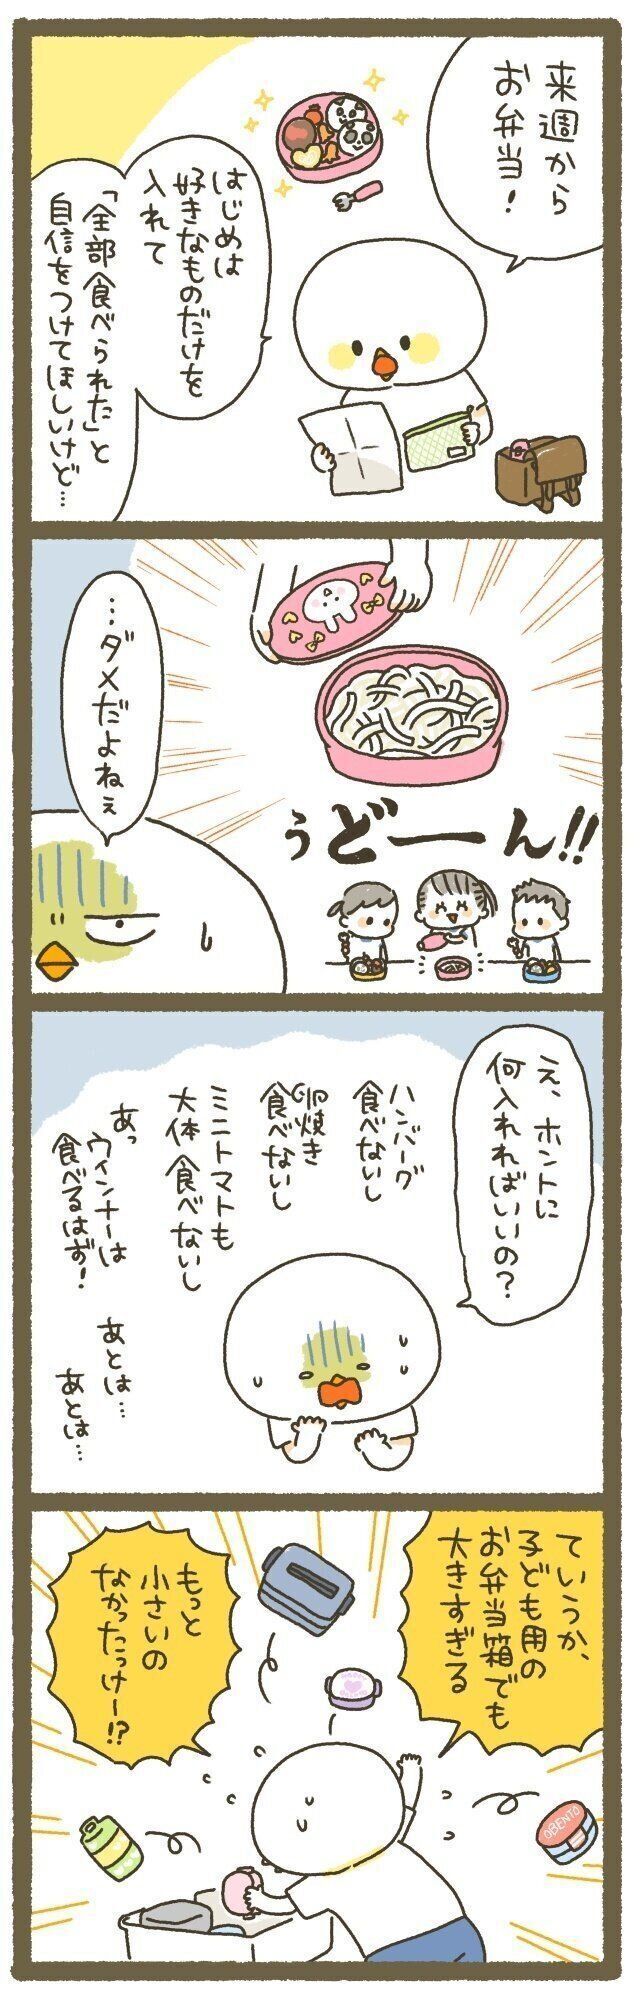 来週から
お弁当！
はじめは
好きなものだけを
入れて
「全部食べられた」と
自信をつけてほしいけど…
うどーん!!
…ダメだよねぇ
え、ホントに
何入れればいいの？
ハンバーグ
食べないし
卵焼き
食べないし
ミニトマトも
大体食べないし
あっ
ウィンナーは
食べるはず！
あとは…
あとは…
ていうか、
子ども用の
お弁当箱でも
大きすぎる
もっと
小さいの
なかったっけー!?
OBENTO